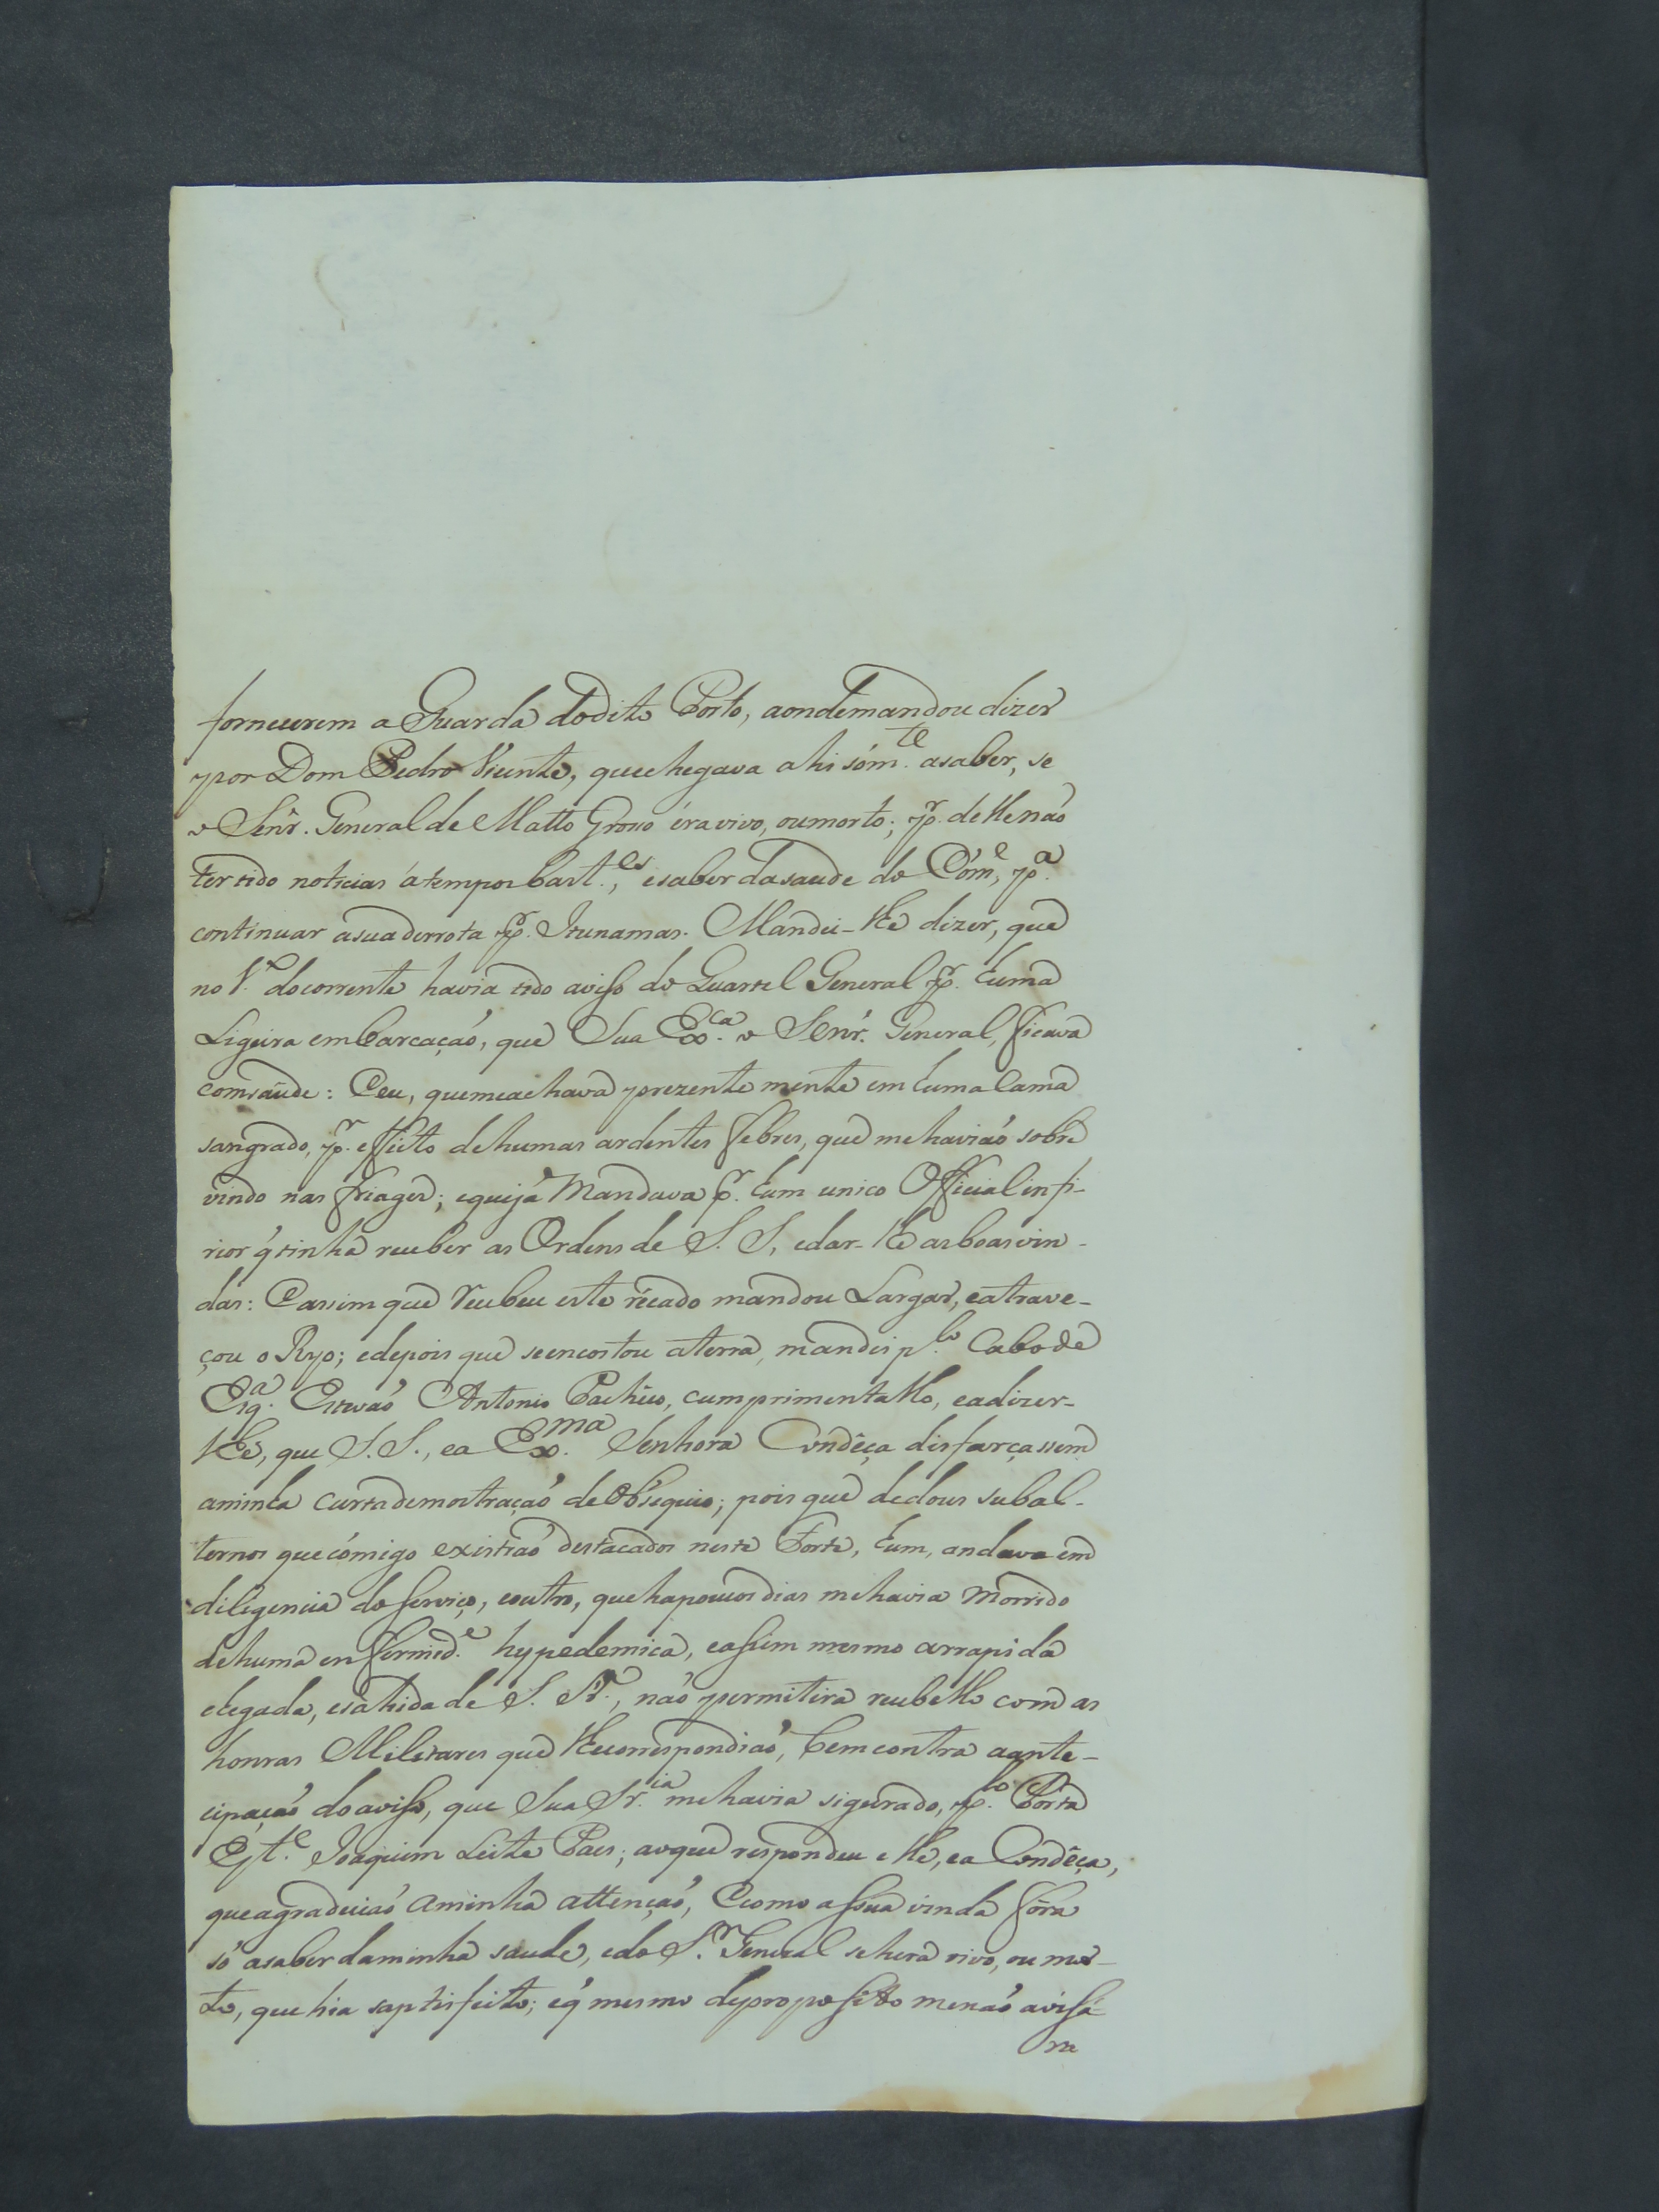 fornecerem a Guarda dodito Porto, aondemandou dizer
por Dom Pedro Vicente, quechegava ahi sóm.te asaber, se
o Senr. General de Matto Groso éravivo, oumorto; p.r delhe naó
ter tido noticias átempos bast.es, esaber dasaude do Cóm.e, p.a
continuar asuaderrota p.r Itunamas. Mandei-lhe dizer, que
no 1.º docorrente havia tido aviso do Quartel General p.r huma
Ligeira embarcaçaó, que Sua Ex.ca o Senr. General, ficava
comsaúde: Eeu, quemeachava prezentemente em huma Cama
sangrado, p.r effeito dehumas ardentes febres, que mehaviaó sobre
vindo nas friages; equejá Mandava p.r hum unico Official infi-
rior q̃ tinha receber as Ordens de S. S, edar-lhe asboasvin-
das: Eassim que recebeu este récado mandou Largar, eatrave-
çou o Ryo; edepois que seencostou aterra, mandei p.lo Cabode
Esq.a Estevaó Antonio Pachêco, cumprimentallo, eadizer-
lhe, que S. S., ea Ex.ma Senhora Condêça disfarçassem
aminha curtademostraçaó de Obsequio; pois que dedous subal-
ternos quecómigo existiaó destacados neste Forte, hum, andava em
diligencia do serviço, eoutro, quehapoucos dias mehavia Morrido
dehuma enfermid.e hypedemica, eassim mesmo arrapida
chegada, esahida de S. Sr.ª, naó permitira recebello com as
honras Militares que lhecorrespondiaó, bemcontra aante-
cipaçaó doaviso, que Sua Sr.ia mehavia sigurado, p.lo Porta
Est.e Joaquim Leite Paes; aoque respondeu elle, ea Condêça,
queagradeciaó aminha attençaó, Ecomo asua vinda fôra
só asaber daminha saude, edo S.r General sehera vivo, ou mor-
to, que hia saptisfeito; eq̃ mesmo depropósito menaó avisá-
ra